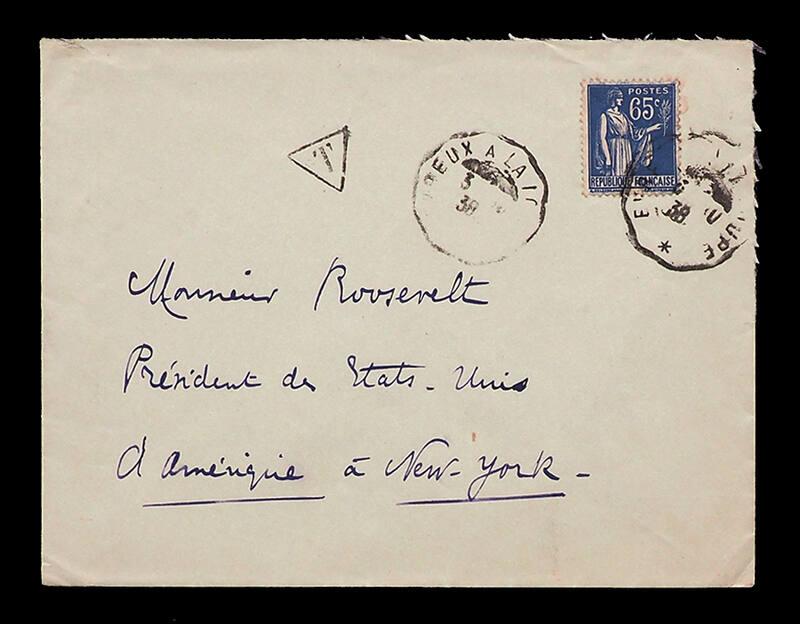 POSTES
65c
RÉPUBLIQUE FRANÇAISE
T
EUX A LA
3
38
38
*
Monsieur Roosevelt
Président des Etats-Unis
d'Amérique à New-York-